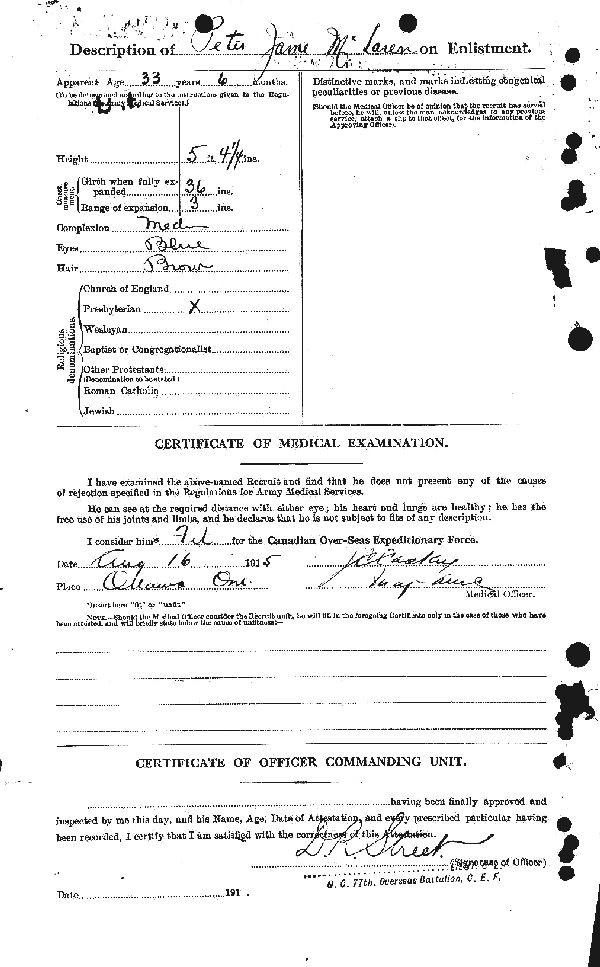 Description of Peter Jame McLaren on Enlistment.
Apparent Age 33 years 6 months.
(To be determined according to the instructions given in the Regulations for Army Medical Services.)
Distinctive marks, and marks indicating congenital
peculiarities or previous disease.
(Should the Medical Officer be of opinion that the recruit has served
before, he will, unless the man acknowledges to any previous
service, attach a slip to that effect, for the information of the
Approving Officer).
Height 5 ft. 4 1/4 ins.
Girth when fully expanded 36 ins.
Range of expansion 3 ins.
Complexion Med
Eyes Blue
Hair Brown
Religious denominations.
Church of England
Presbyterian X
Wesleyan
Baptist or Congregationalist
Other Protestants
(Denomination to be stated.)
Roman Catholic
Jewish
CERTIFICATE OF MEDICAL EXAMINATION.
I have examined the above-named Recruit and find that he does not present any of the causes
of rejection specified in the Regulations for Army Medical Services.
He can see at the required distance with either eye; his heart and lungs are healthy; he has the
free use of his joints and limbs, and he declares that he is not subject to fits of any description.
I consider him* Fit for the Canadian Over-Seas Expeditionary Force.
Date Aug 16 1915
Place Ottawa Ont.
Medical Officer.
*Insert here "fit" or "unfit"
NOTE.—Should the Medical Officer consider the Recruit unfit, he will fill in the foregoing Certificate only in the case of those who have
been attested, and will briefly state below the cause of unfitness:—
CERTIFICATE OF OFFICER COMMANDING UNIT.
having been finally approved and
inspected by me this day, and his Name, Age, Date of Attestation, and every prescribed particular having
been recorded, I certify that I am satisfied with the correctness of this Attestation.
D. R. Street
(Signature of Officer)
O. C. 77th. Overseas Battalion, C. E. F.
Date 191 .